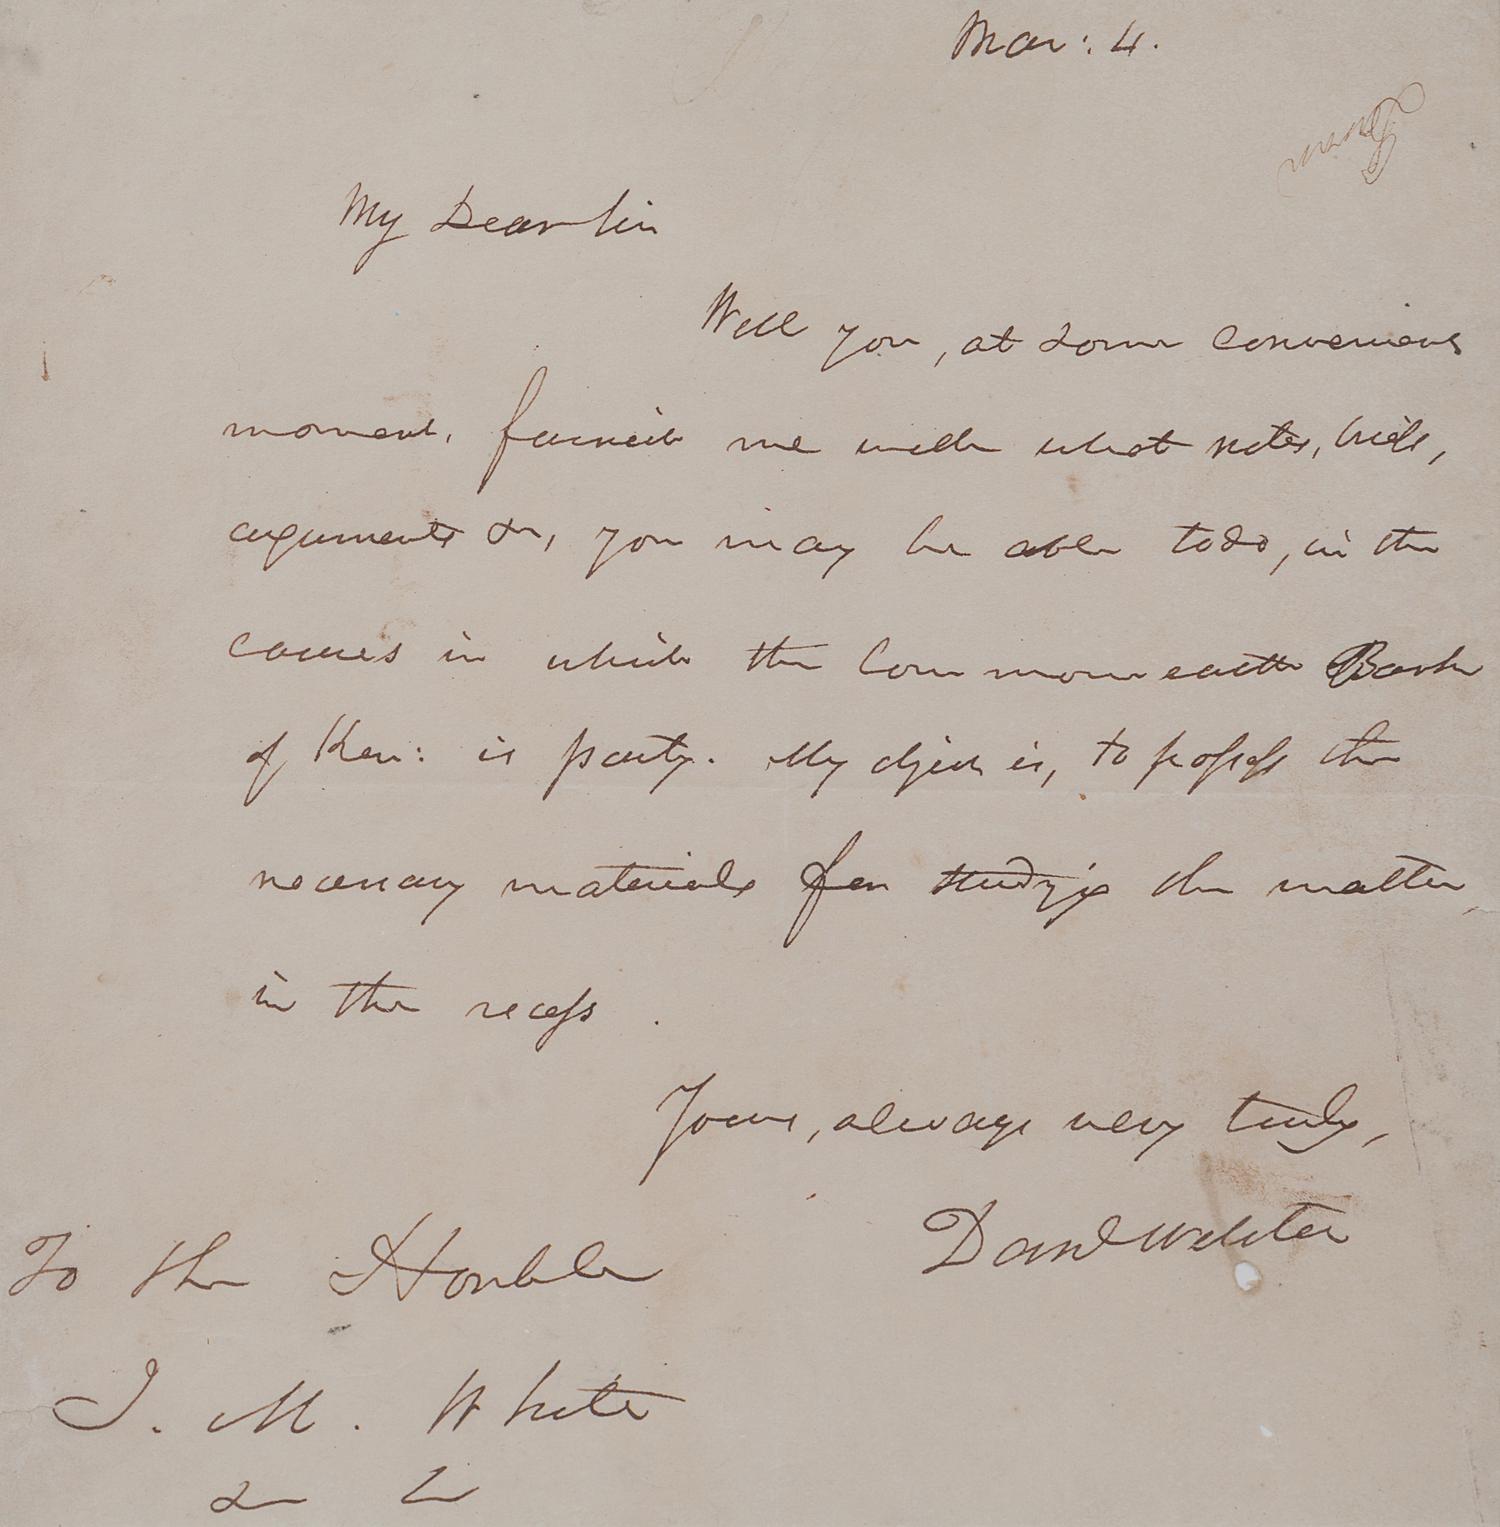 Mar: 4.
My Dear Sir
Will you, at some convenient
moment, furnish me with what notes, briefs,
arguments &c, you may be able to do, in the
causes in which the Commonwealth Bank
of Ken: is party. My object is, to possess the
necessary materials for studying the matter
in the recess.
Yours, always very truly,
Danl Webster
To the Honble
J. M. White